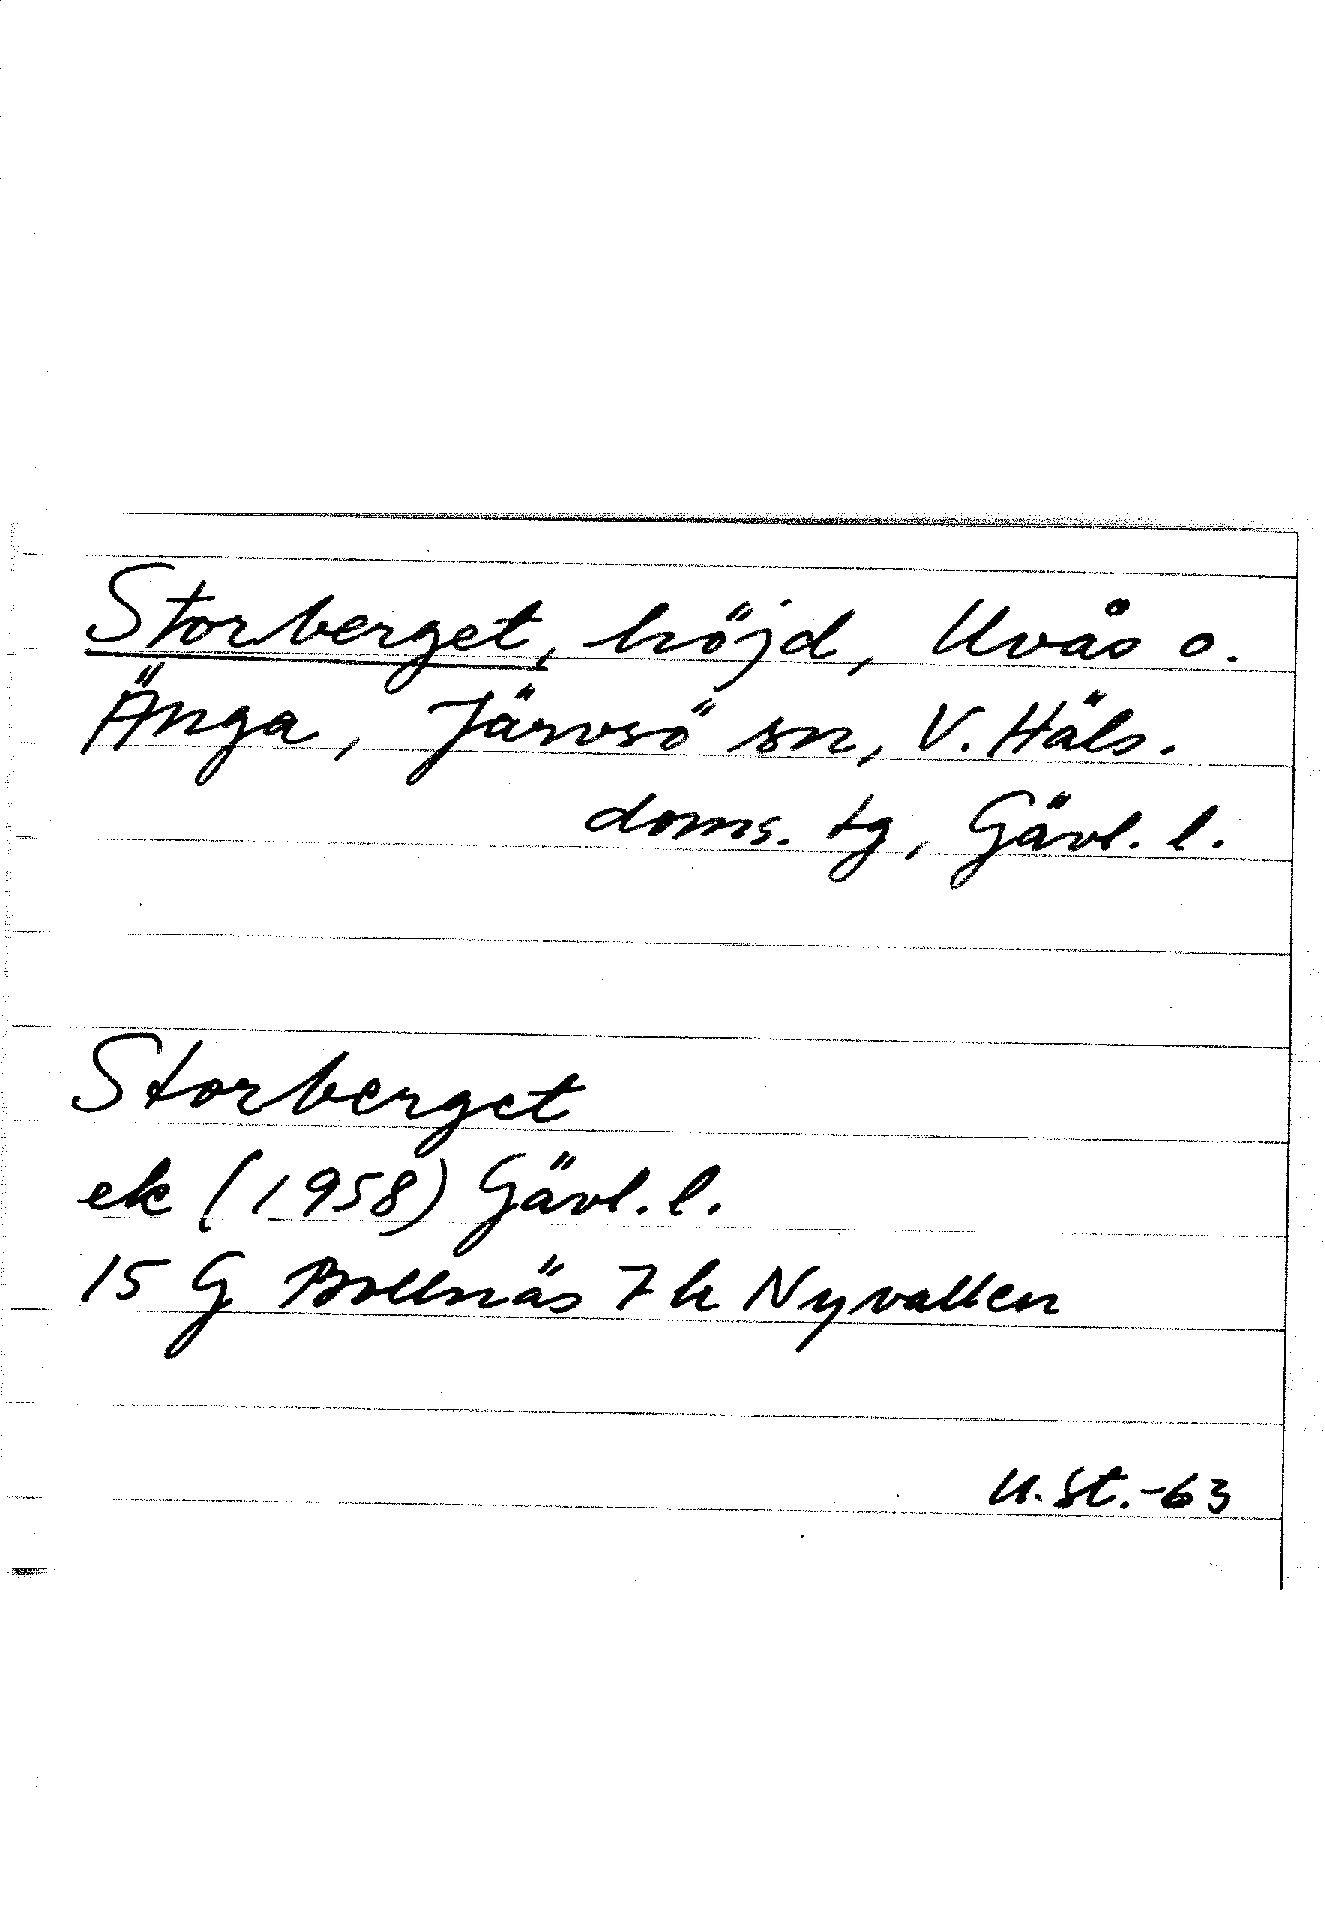 Storberget, höjd, Uvås o.
Änga, Järvsö sn, V. Häls.
doms. tg, Gävl. l.
Storberget
ek (1958) Gävl. l.
15 G Bollnäs 7 h Nyvallen
U. St. -63